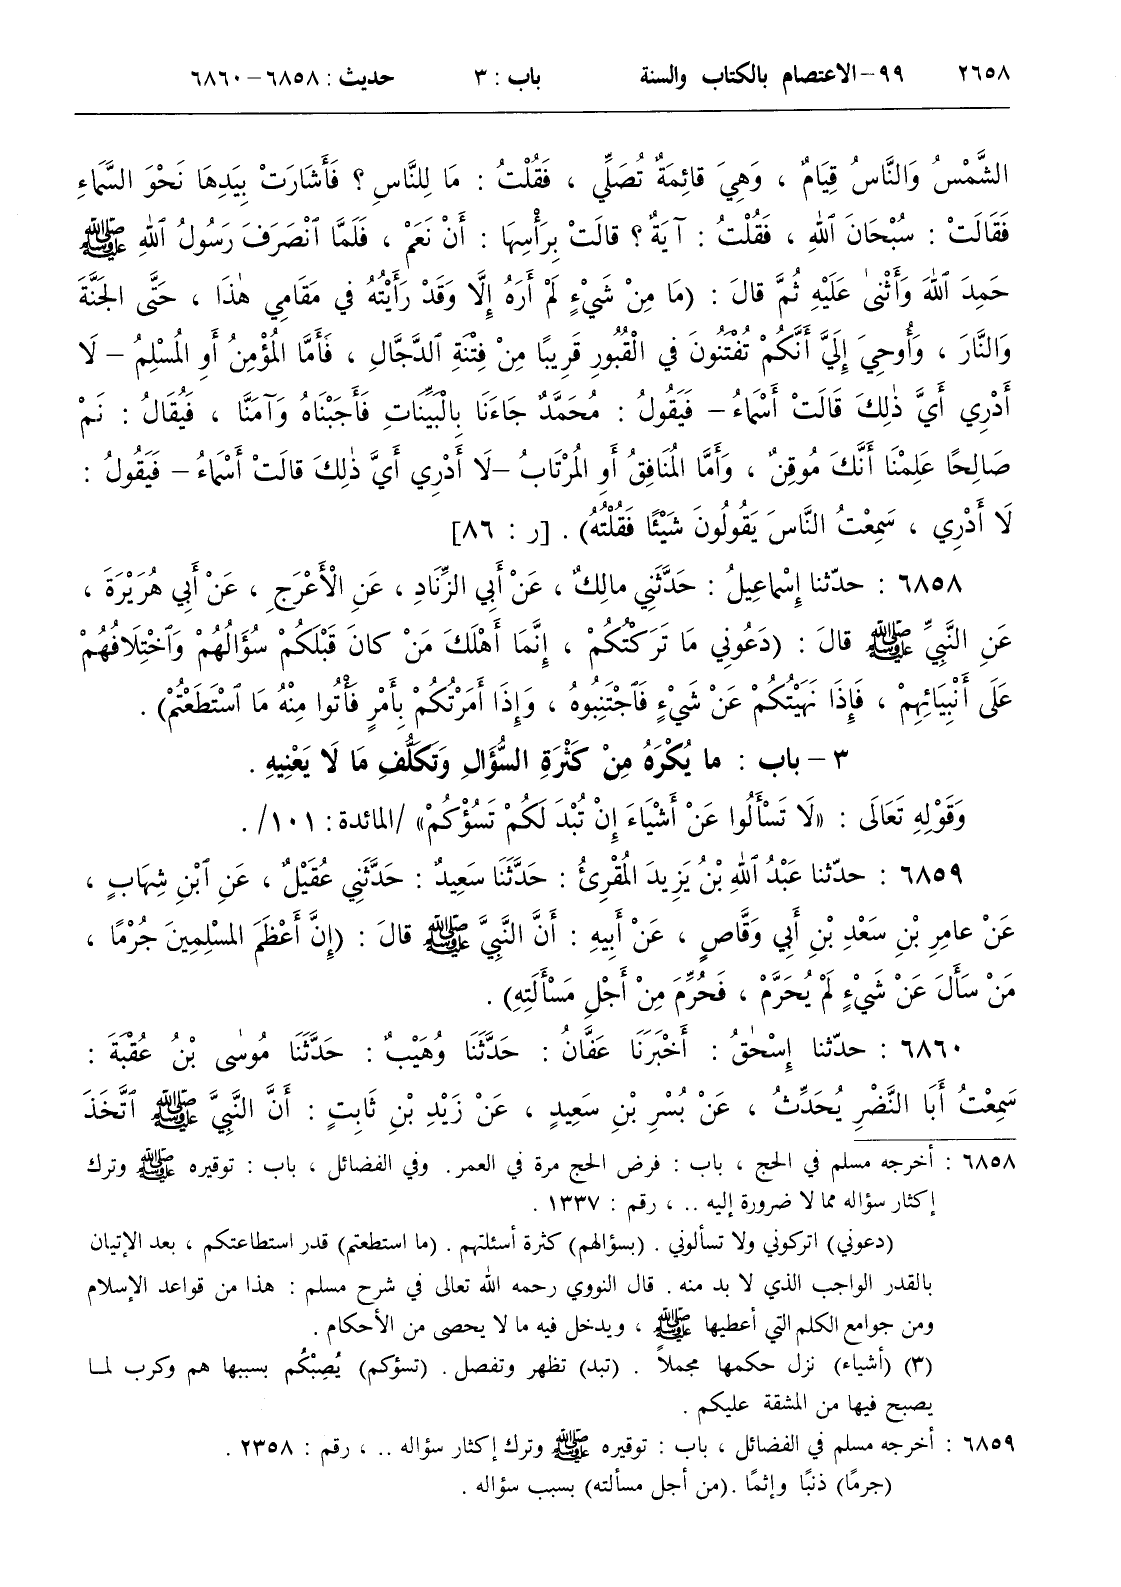 ٢٦٥٨ ٩٩-الاعتصام بالكتاب والسنة باب : ٣ حديث : ٦٨٥٨-٦٨٦٠
الشَّمْسُ وَالنَّاسُ قِيَامٌ ، وَهِيَ قائِمَةٌ تُصَلِّي ، فَقُلْتُ : مَا لِلنَّاسِ ؟ فَأَشَارَتْ بِيَدِهَا نَحْوَ السَّمَاءِ
فَقَالَتْ : سُبْحَانَ ٱللهِ ، فَقُلْتُ : آيَةٌ ؟ قالَتْ بِرَأْسِهَا : أَنْ نَعَمْ ، فَلَمَّا ٱنْصَرَفَ رَسُولُ ٱللهِ ﷺ
حَمِدَ ٱللهَ وَأَثْنىٰ عَلَيْهِ ثُمَّ قالَ : (مَا مِنْ شَيْءٍ لَمْ أَرَهُ إِلَّا وَقَدْ رَأَيْتُهُ في مَقَامِي هٰذَا ، حَتَّى الجَنَّةَ
وَالنَّارَ ، وَأُوحِيَ إِلَيَّ أَنَّكُمْ تُفْتَنُونَ في الْقُبُورِ قَرِيبًا مِنْ فِتْنَةِ ٱلدَّجَّالِ ، فَأَمَّا المُؤْمِنُ أَوِ المُسْلِمُ – لَا
أَدْرِي أَيَّ ذٰلِكَ قَالَتْ أَسْمَاءُ – فَيَقُولُ : مُحَمَّدٌ جَاءَنَا بِالْبَيِّنَاتِ فَأَجَبْنَاهُ وَآمَنَّا ، فَيُقَالُ : نَمْ
صَالِحًا عَلِمْنَا أَنَّكَ مُوقِنٌ ، وَأَمَّا المُنَافِقُ أَوِ المُرْتَابُ –لَا أَدْرِي أَيَّ ذٰلِكَ قالَتْ أَسْمَاءُ – فَيَقُولُ :
لَا أَدْرِي ، سَمِعْتُ النَّاسَ يَقُولُونَ شَيْئًا فَقُلْتُهُ) . [ر : ٨٦]
٦٨٥٨ : حدّثنا إِسْماعِيلُ : حَدَّثَنِي مالِكٌ ، عَنْ أَبِي الزِّنَادِ ، عَنِ الْأَعْرَجِ ، عَنْ أَبِي هُرَيْرَةَ ،
عَنِ النَّبِيِّ ﷺ قالَ : (دَعُونِي مَا تَرَكْتُكُمْ ، إِنَّمَا أَهْلَكَ مَنْ كانَ قَبْلَكُمْ سُؤَالُهُمْ وَٱخْتِلَافُهُمْ
عَلَى أَنْبِيَائِهِمْ ، فَإِذَا نَهَيْتُكُمْ عَنْ شَيْءٍ فَٱجْتَنِبُوهُ ، وَإِذَا أَمَرْتُكُمْ بِأَمْرٍ فَأْتُوا مِنْهُ مَا ٱسْتَطَعْتُمْ) .
٣ – باب : ما يُكْرَهُ مِنْ كَثْرَةِ السُّؤَالِ وَتَكَلُّفِ مَا لَا يَعْنِيهِ .
وَقَوْلِهِ تَعَالَى : «لَا تَسْأَلُوا عَنْ أَشْيَاءَ إِنْ تُبْدَ لَكُمْ تَسُؤْكُمْ» /المائدة: ١٠١/ .
٦٨٥٩ : حدّثنا عَبْدُ ٱللهِ بْنُ يَزِيدَ المُقْرِئُ : حَدَّثَنَا سَعِيدٌ : حَدَّثَنِي عُقَيْلٌ ، عَنِ ٱبْنِ شِهَابٍ ،
عَنْ عامِرِ بْنِ سَعْدِ بْنِ أَبِي وَقَّاصٍ ، عَنْ أَبِيهِ : أَنَّ النَّبِيَّ ﷺ قالَ : (إِنَّ أَعْظَمَ المُسْلِمِينَ جُرْمًا ،
مَنْ سَأَلَ عَنْ شَيْءٍ لَمْ يُحَرَّمْ ، فَحُرِّمَ مِنْ أَجْلِ مَسْأَلَتِهِ) .
٦٨٦٠ : حدّثنا إِسْحٰقُ : أَخْبَرَنَا عَفَّانُ : حَدَّثَنَا وُهَيْبٌ : حَدَّثَنَا مُوسٰى بْنُ عُقْبَةَ :
سَمِعْتُ أَبَا النَّضْرِ يُحَدِّثُ ، عَنْ بُسْرِ بْنِ سَعِيدٍ ، عَنْ زَيْدِ بْنِ ثَابِتٍ : أَنَّ النَّبِيَّ ﷺ ٱتَّخَذَ
٦٨٥٨ : أخرجه مسلم في الحج ، باب : فرض الحج مرة في العمر. وفي الفضائل ، باب : توقيره ﷺ وترك
إكثار سؤاله مما لا ضرورة إليه .. ، رقم : ١٣٣٧ .
(دعوني) اتركوني ولا تسألوني . (بسؤالهم) كثرة أسئلتهم . (ما استطعتم) قدر استطاعتكم ، بعد الإتيان
بالقدر الواجب الذي لا بد منه . قال النووي رحمه الله تعالى في شرح مسلم : هذا من قواعد الإسلام
ومن جوامع الكلم التي أعطيها ﷺ ، ويدخل فيه ما لا يحصى من الأحكام .
(٣) (أشياء) نزل حكمها مجملاً . (تبد) تظهر وتفصل . (تسؤكم) يُصِبْكُم بسببها هم وكرب لما
يصبح فيها من المشقة عليكم .
٦٨٥٩ : أخرجه مسلم في الفضائل ، باب : توقيره ﷺ وترك إكثار سؤاله .. ، رقم : ٢٣٥٨ .
(جرمًا) ذنبًا وإثمًا .(من أجل مسألته) بسبب سؤاله .